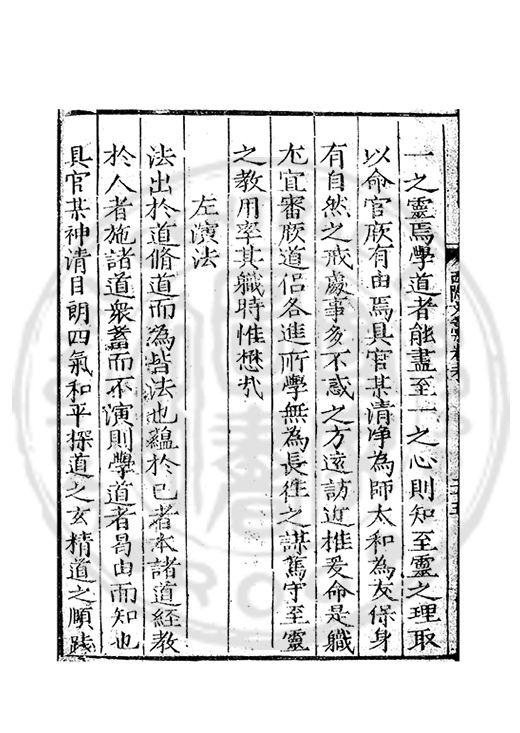 一之靈焉學道者能盡至一之心則知至靈之理取
以命官厥有由焉具官某清淨為師太和為友保身
有自然之戒處事多不惑之方遠訪近推爰命是職
尒宜審厥道侶各進所學無為長往之謀篤守至靈
之教用率其職時惟懋哉
左演法
法出於道脩道而為皆法也蘊於己者本諸道經教
於人者施諸道衆蓄而不演則學道者曷由而知也
具官某神清目朗四氣和平探道之玄精道之順踐
二十五